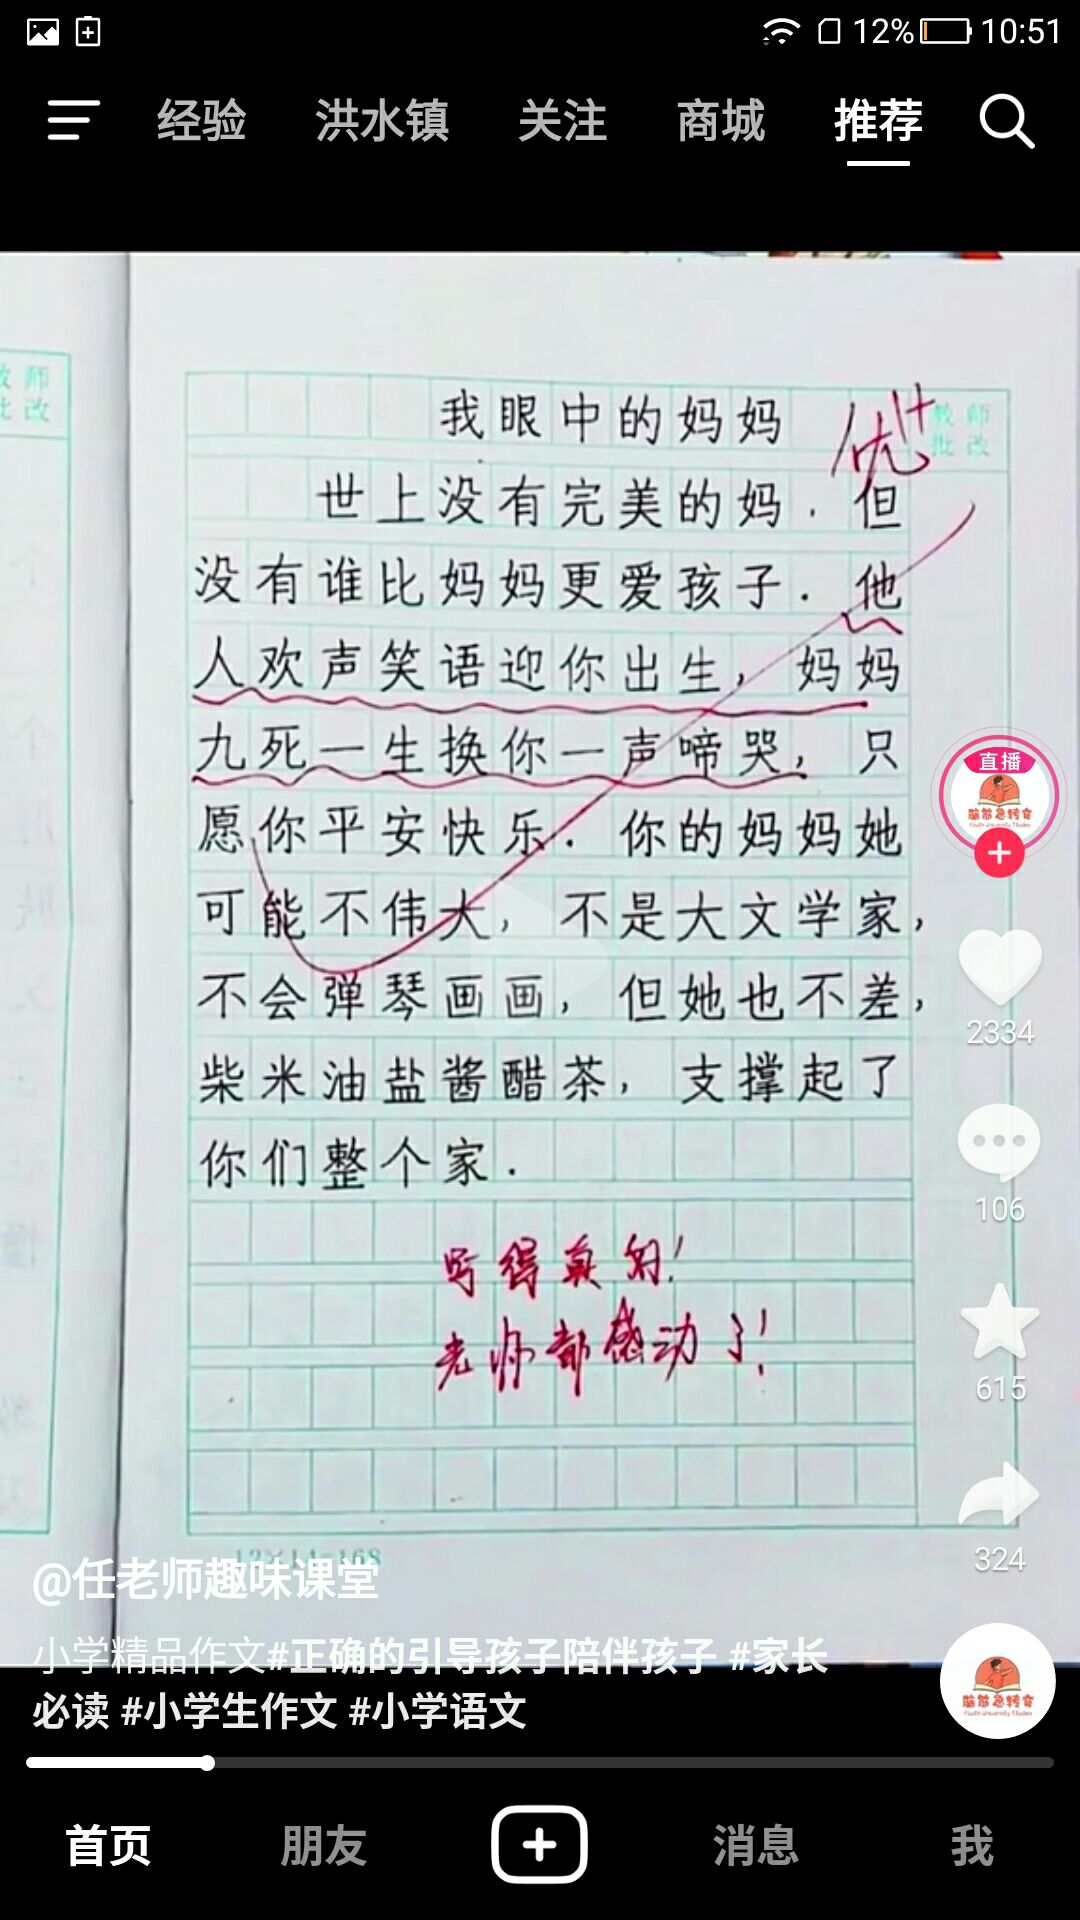 12% 10:51
经验 洪水镇 关注 商城 推荐
教师
批改
我眼中的妈妈
优+
教师
批改
世上没有完美的妈．但
没有谁比妈妈更爱孩子．他
人欢声笑语迎你出生，妈妈
九死一生换你一声啼哭，只
愿你平安快乐．你的妈妈她
可能不伟大，不是大文学家，
不会弹琴画画，但她也不差，
柴米油盐酱醋茶，支撑起了
你们整个家．
写得真的！
老师都感动了！
直播
脑筋急转弯
Youth University Studies
2334
106
615
324
12×14=168
@任老师趣味课堂
小学精品作文#正确的引导孩子陪伴孩子 #家长
必读 #小学生作文 #小学语文
脑筋急转弯
Youth University Studies
首页 朋友 消息 我